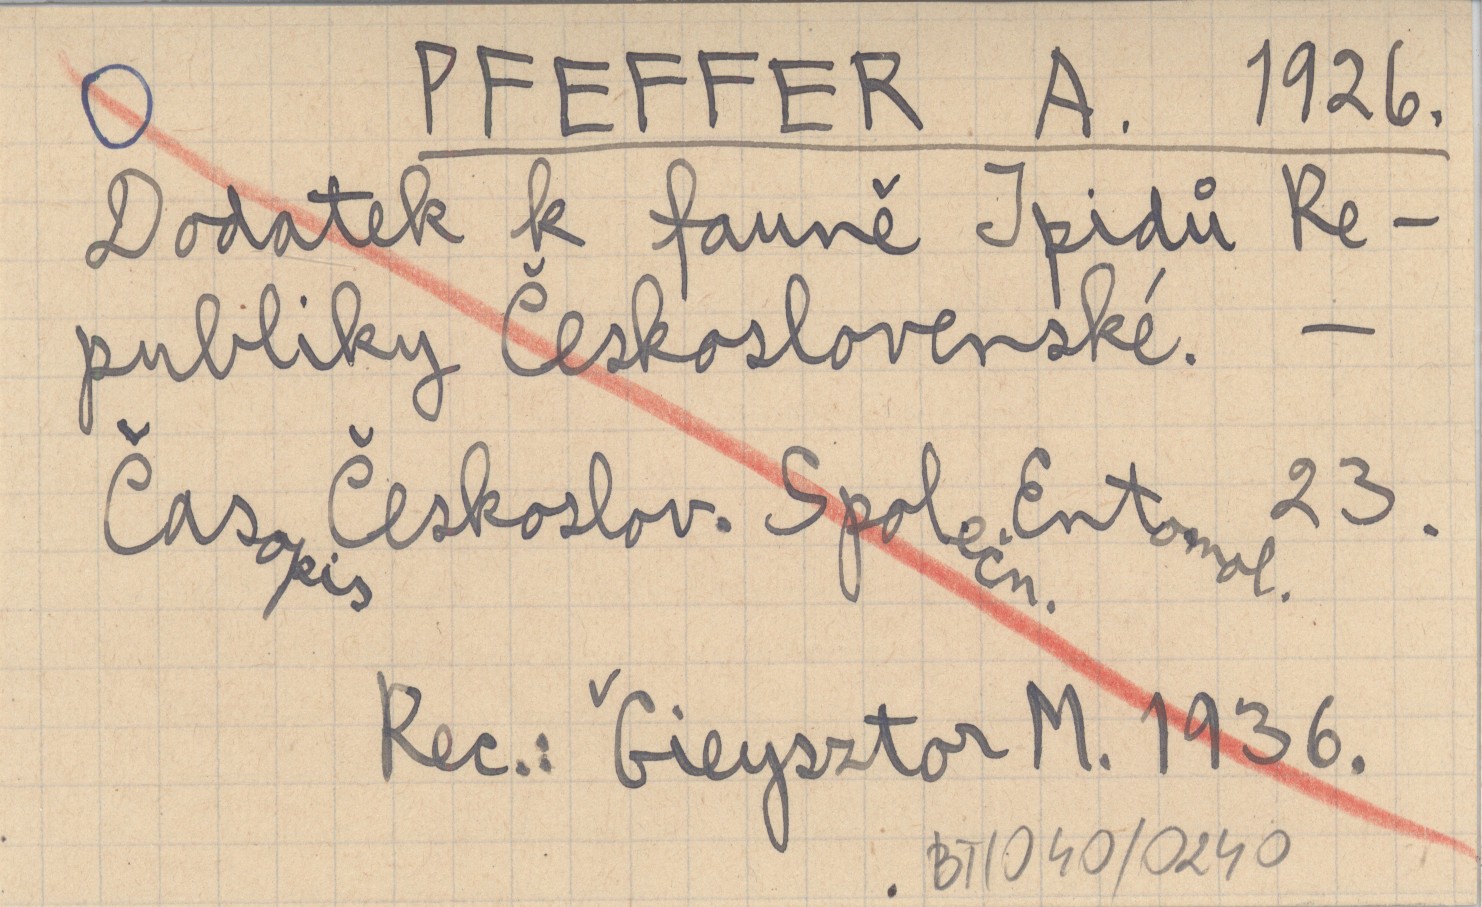 PFEFFER A. 1926.
Dodatek k fauně Ipidů Re-
publiky Československé. —
Časopis Českoslov. Společn. Entomol. 23.
Rec.: Gieysztor M. 1936.
BT/040/0240